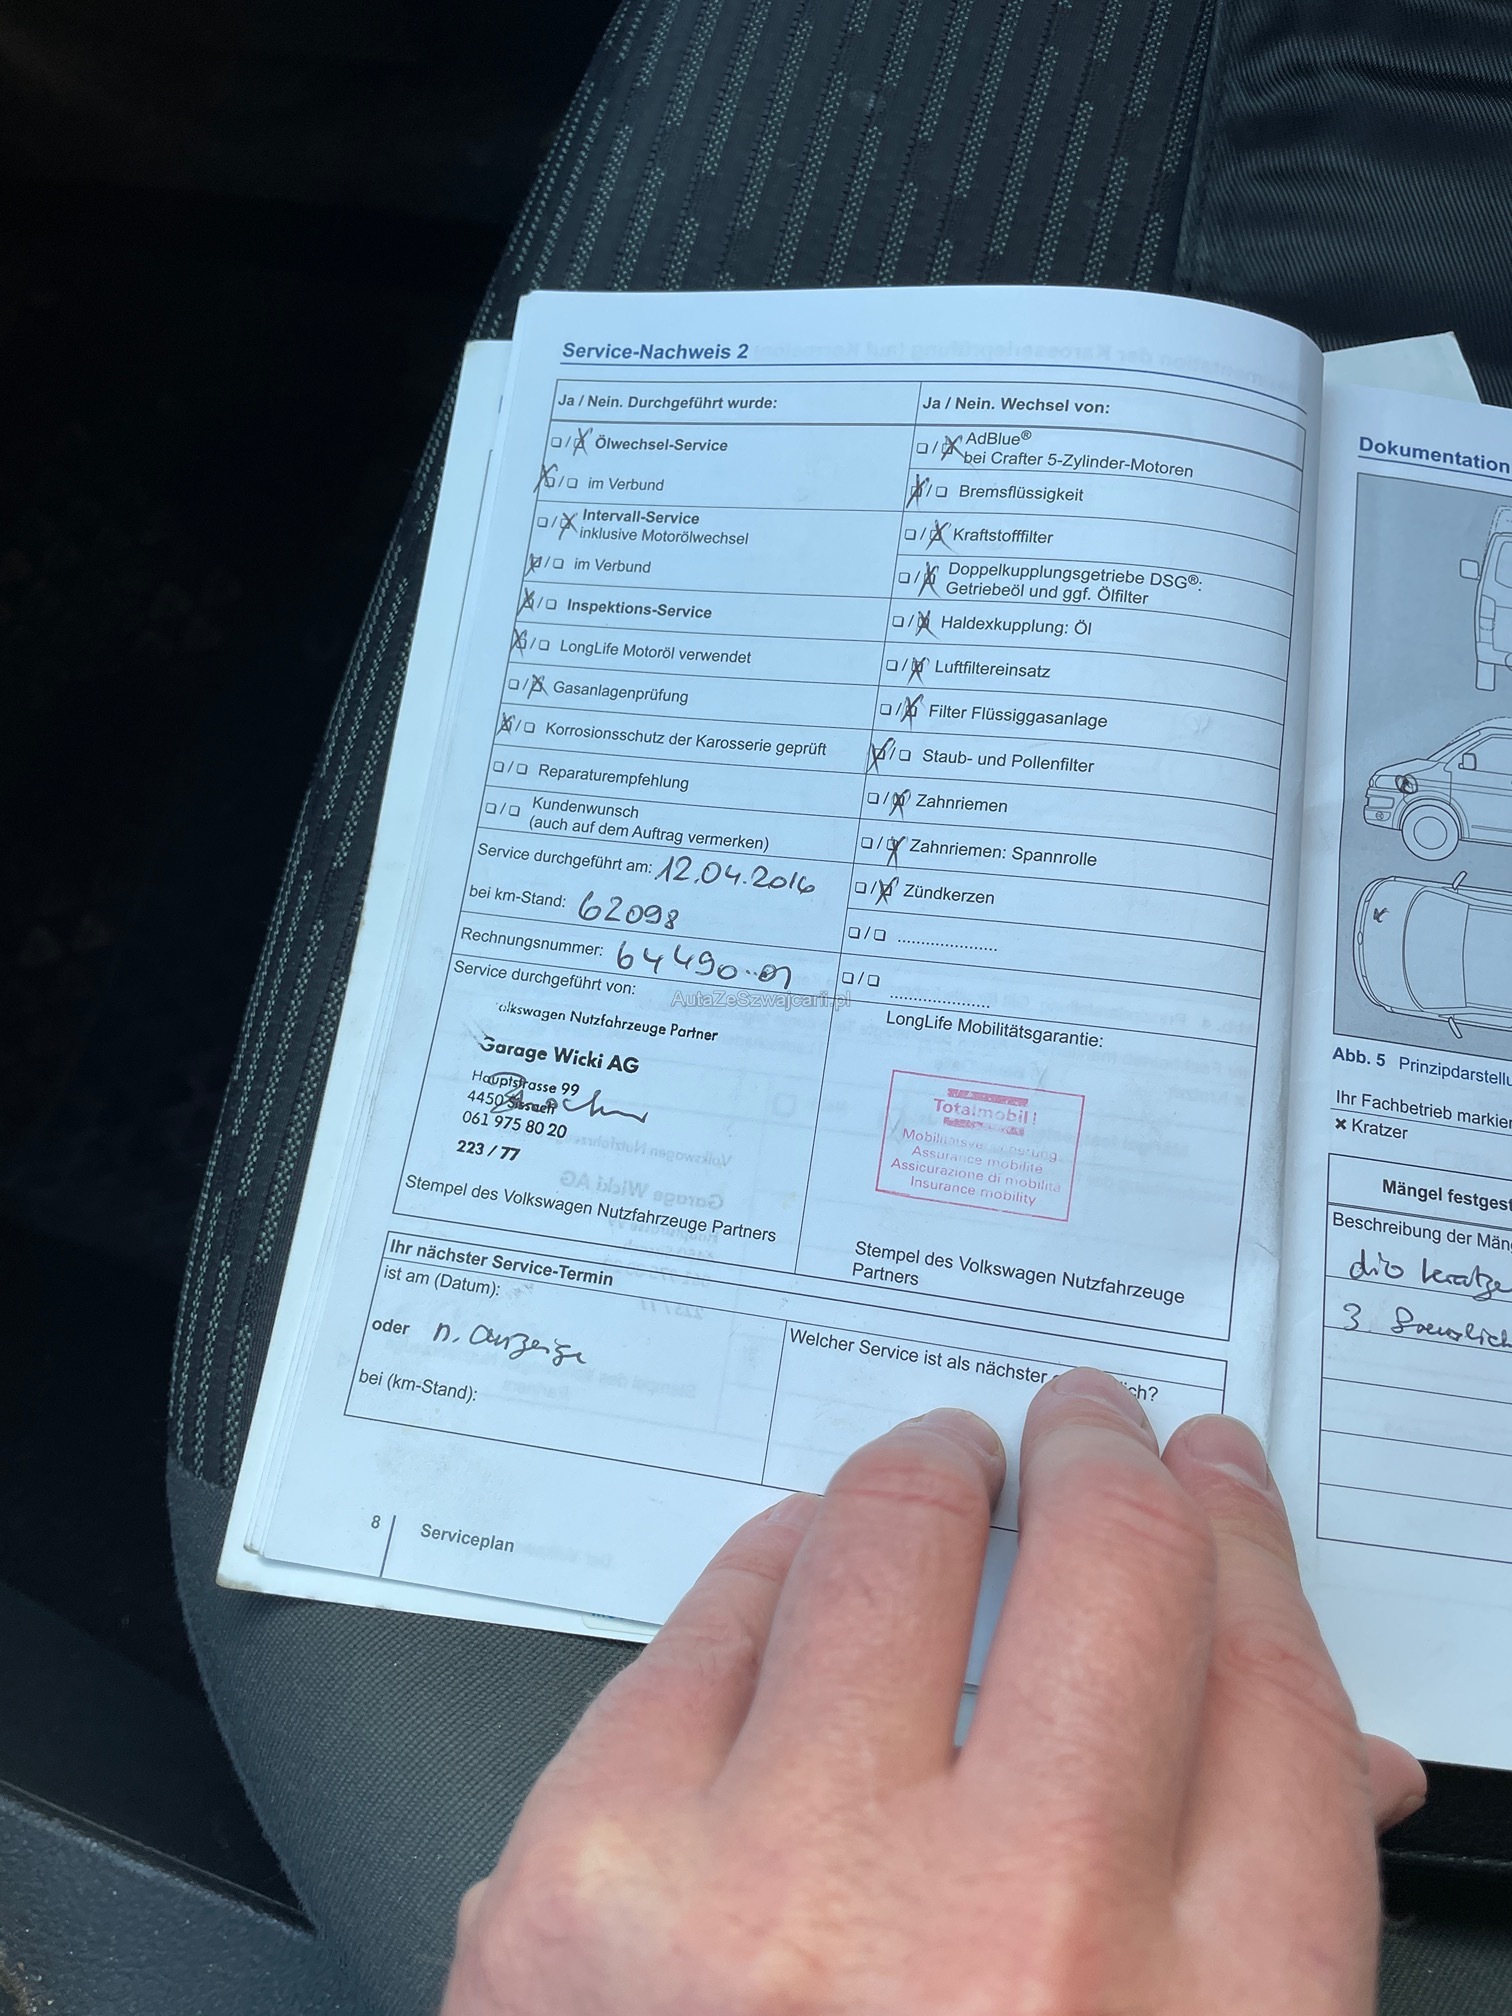 Service-Nachweis 2
Ja / Nein. Durchgeführt wurde:
Ölwechsel-Service
im Verbund
Intervall-Service
inklusive Motorölwechsel
im Verbund
Inspektions-Service
LongLife Motoröl verwendet
Gasanlagenprüfung
Korrosionsschutz der Karosserie geprüft
Reparaturempfehlung
Kundenwunsch
(auch auf dem Auftrag vermerken)
Service durchgeführt am: 12.04.2016
bei km-Stand: 62098
Rechnungsnummer: 64490
Service durchgeführt von:
Volkswagen Nutzfahrzeuge Partner
Garage Wicki AG
Hauptstrasse 99
4450 Sissach
061 975 80 20
223 / 77
Stempel des Volkswagen Nutzfahrzeuge Partners
Ja / Nein. Wechsel von:
AdBlue®
bei Crafter 5-Zylinder-Motoren
Bremsflüssigkeit
Kraftstofffilter
Doppelkupplungsgetriebe DSG®:
Getriebeöl und ggf. Ölfilter
Haldexkupplung: Öl
Luftfiltereinsatz
Filter Flüssiggasanlage
Staub- und Pollenfilter
Zahnriemen
Zahnriemen: Spannrolle
Zündkerzen
.....................
.....................
LongLife Mobilitätsgarantie:
Totalmobil!
Mobilitätsversicherung
Assurance mobilité
Assicurazione di mobilità
Insurance mobility
Stempel des Volkswagen Nutzfahrzeuge
Partners
Ihr nächster Service-Termin
ist am (Datum):
oder n. Anzeige
bei (km-Stand):
Welcher Service ist als nächster
8
Serviceplan
AutaZeSzwajcarii.pl
Dokumentation
Abb. 5 Prinzipdarstellu
Ihr Fachbetrieb markier
× Kratzer
Mängel festgest
Beschreibung der Män
div Kratze
3.